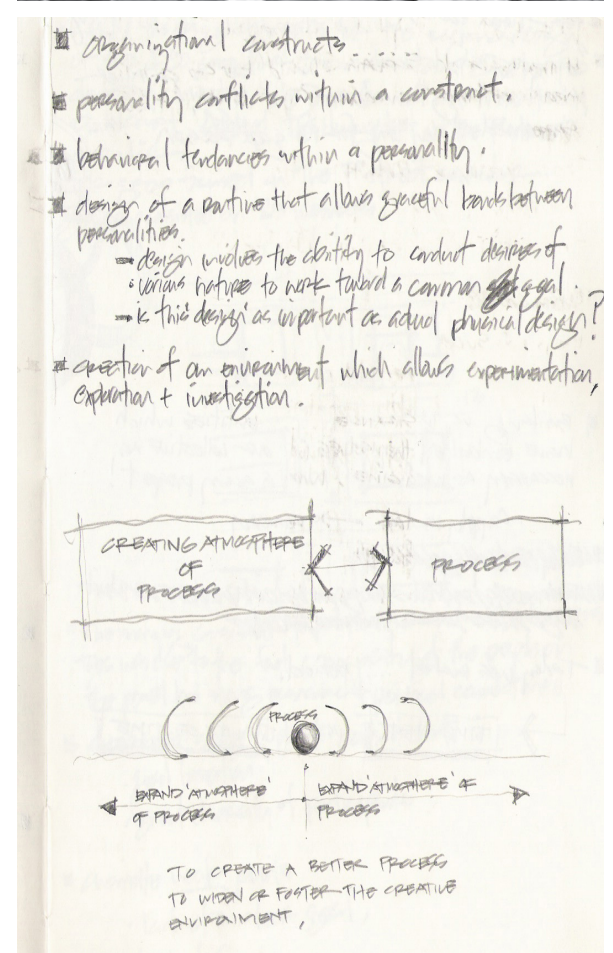 organizational constructs.....
personality conflicts within a construct.
behavioral tendancies within a personality.
design of a routine that allows graceful bonds between
personalities.
design involves the ability to conduct desires of
various nature to work toward a common goal.
is this 'design' as important as actual physical design?
creation of an environment which allows experimentation,
exploration + investigation.
CREATING ATMOSPHERE
OF
PROCESS
PROCESS
PROCESS
EXPAND 'ATMOSPHERE'
OF PROCESS
EXPAND 'ATMOSPHERE' OF
PROCESS
TO CREATE A BETTER PROCESS
TO WIDEN OR FOSTER THE CREATIVE
ENVIRONMENT,